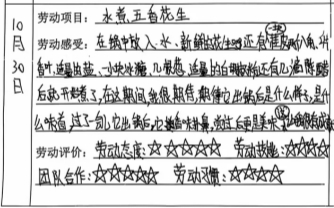 10月30日
劳动项目：水煮五香花生
劳动感受：在锅中放入水、新鲜的花生还有准备的八角、
香叶、适量的盐、一小块冰糖、几根葱、适量的白胡椒粉还有几滴陈醋
后就开煮了，在这期间，我很期待，期待它出锅后是什么样子，是什
么味道，过了一会儿，它出锅后，它香味扑鼻，尝过后更是美味
劳动评价：劳动态度：☆☆☆☆☆ 劳动技能：☆☆☆☆
团队合作：☆☆☆☆☆ 劳动习惯：☆☆☆☆